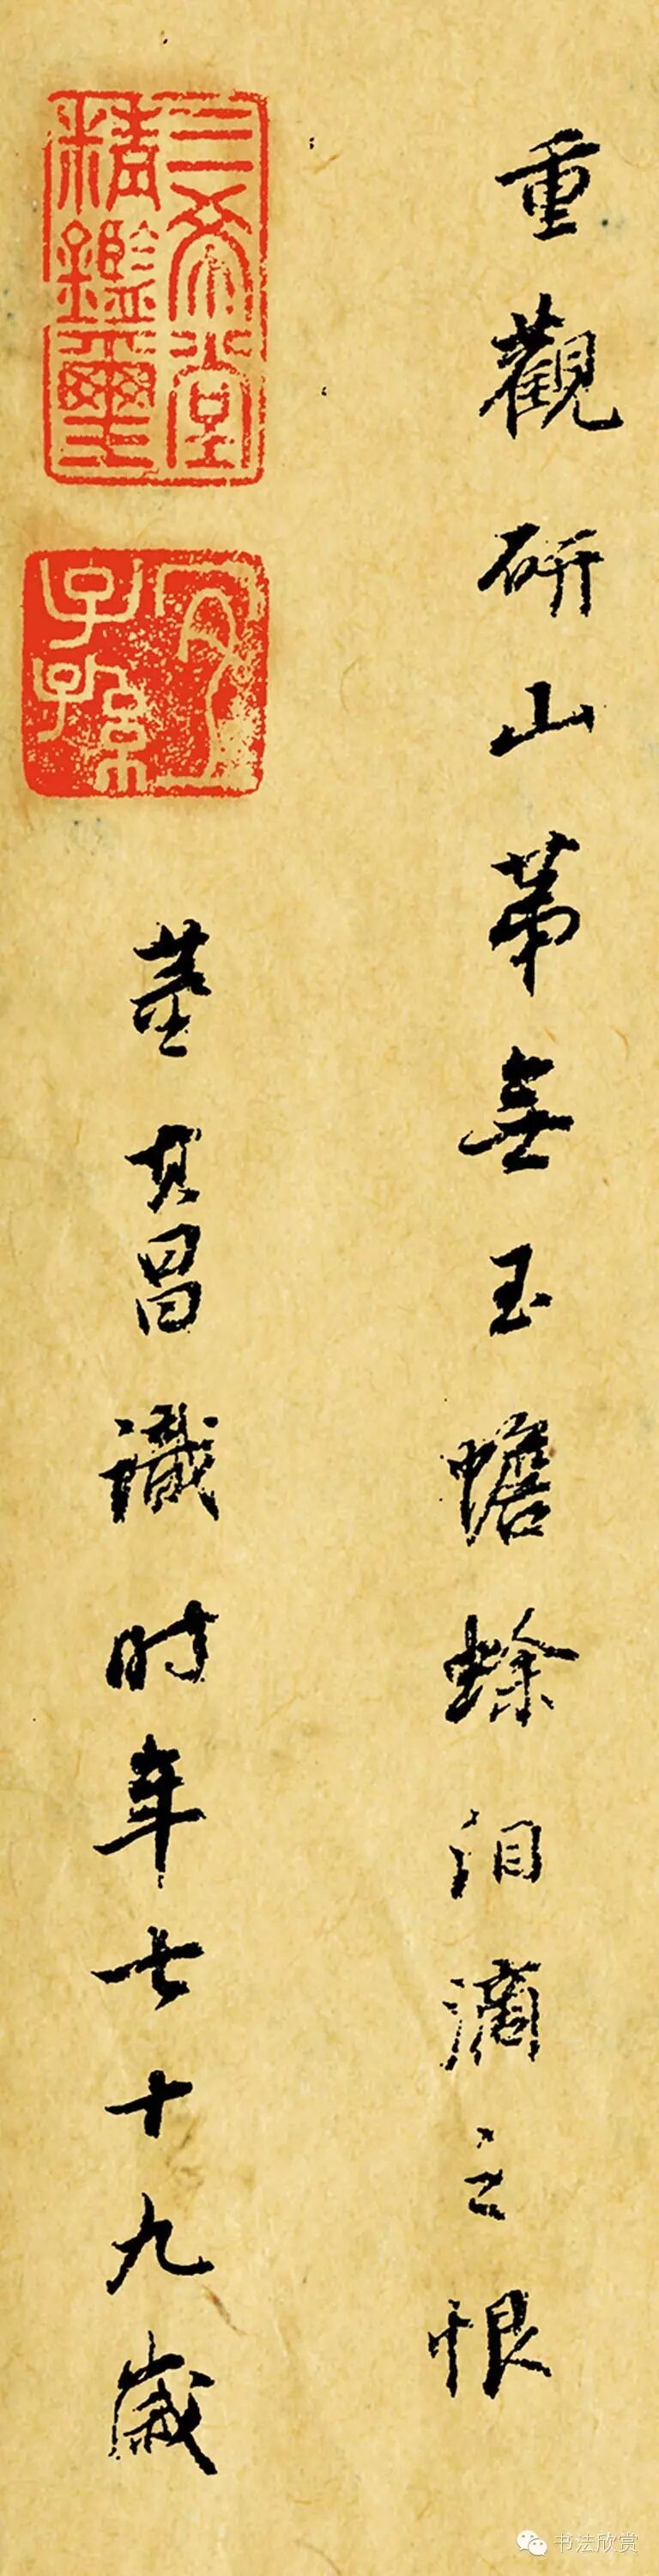 重觀研山苐無玉蟾蜍泪滴之恨
董其昌識时年七十九歲
三希堂
精鑑璽
宜
子孫
书法欣赏